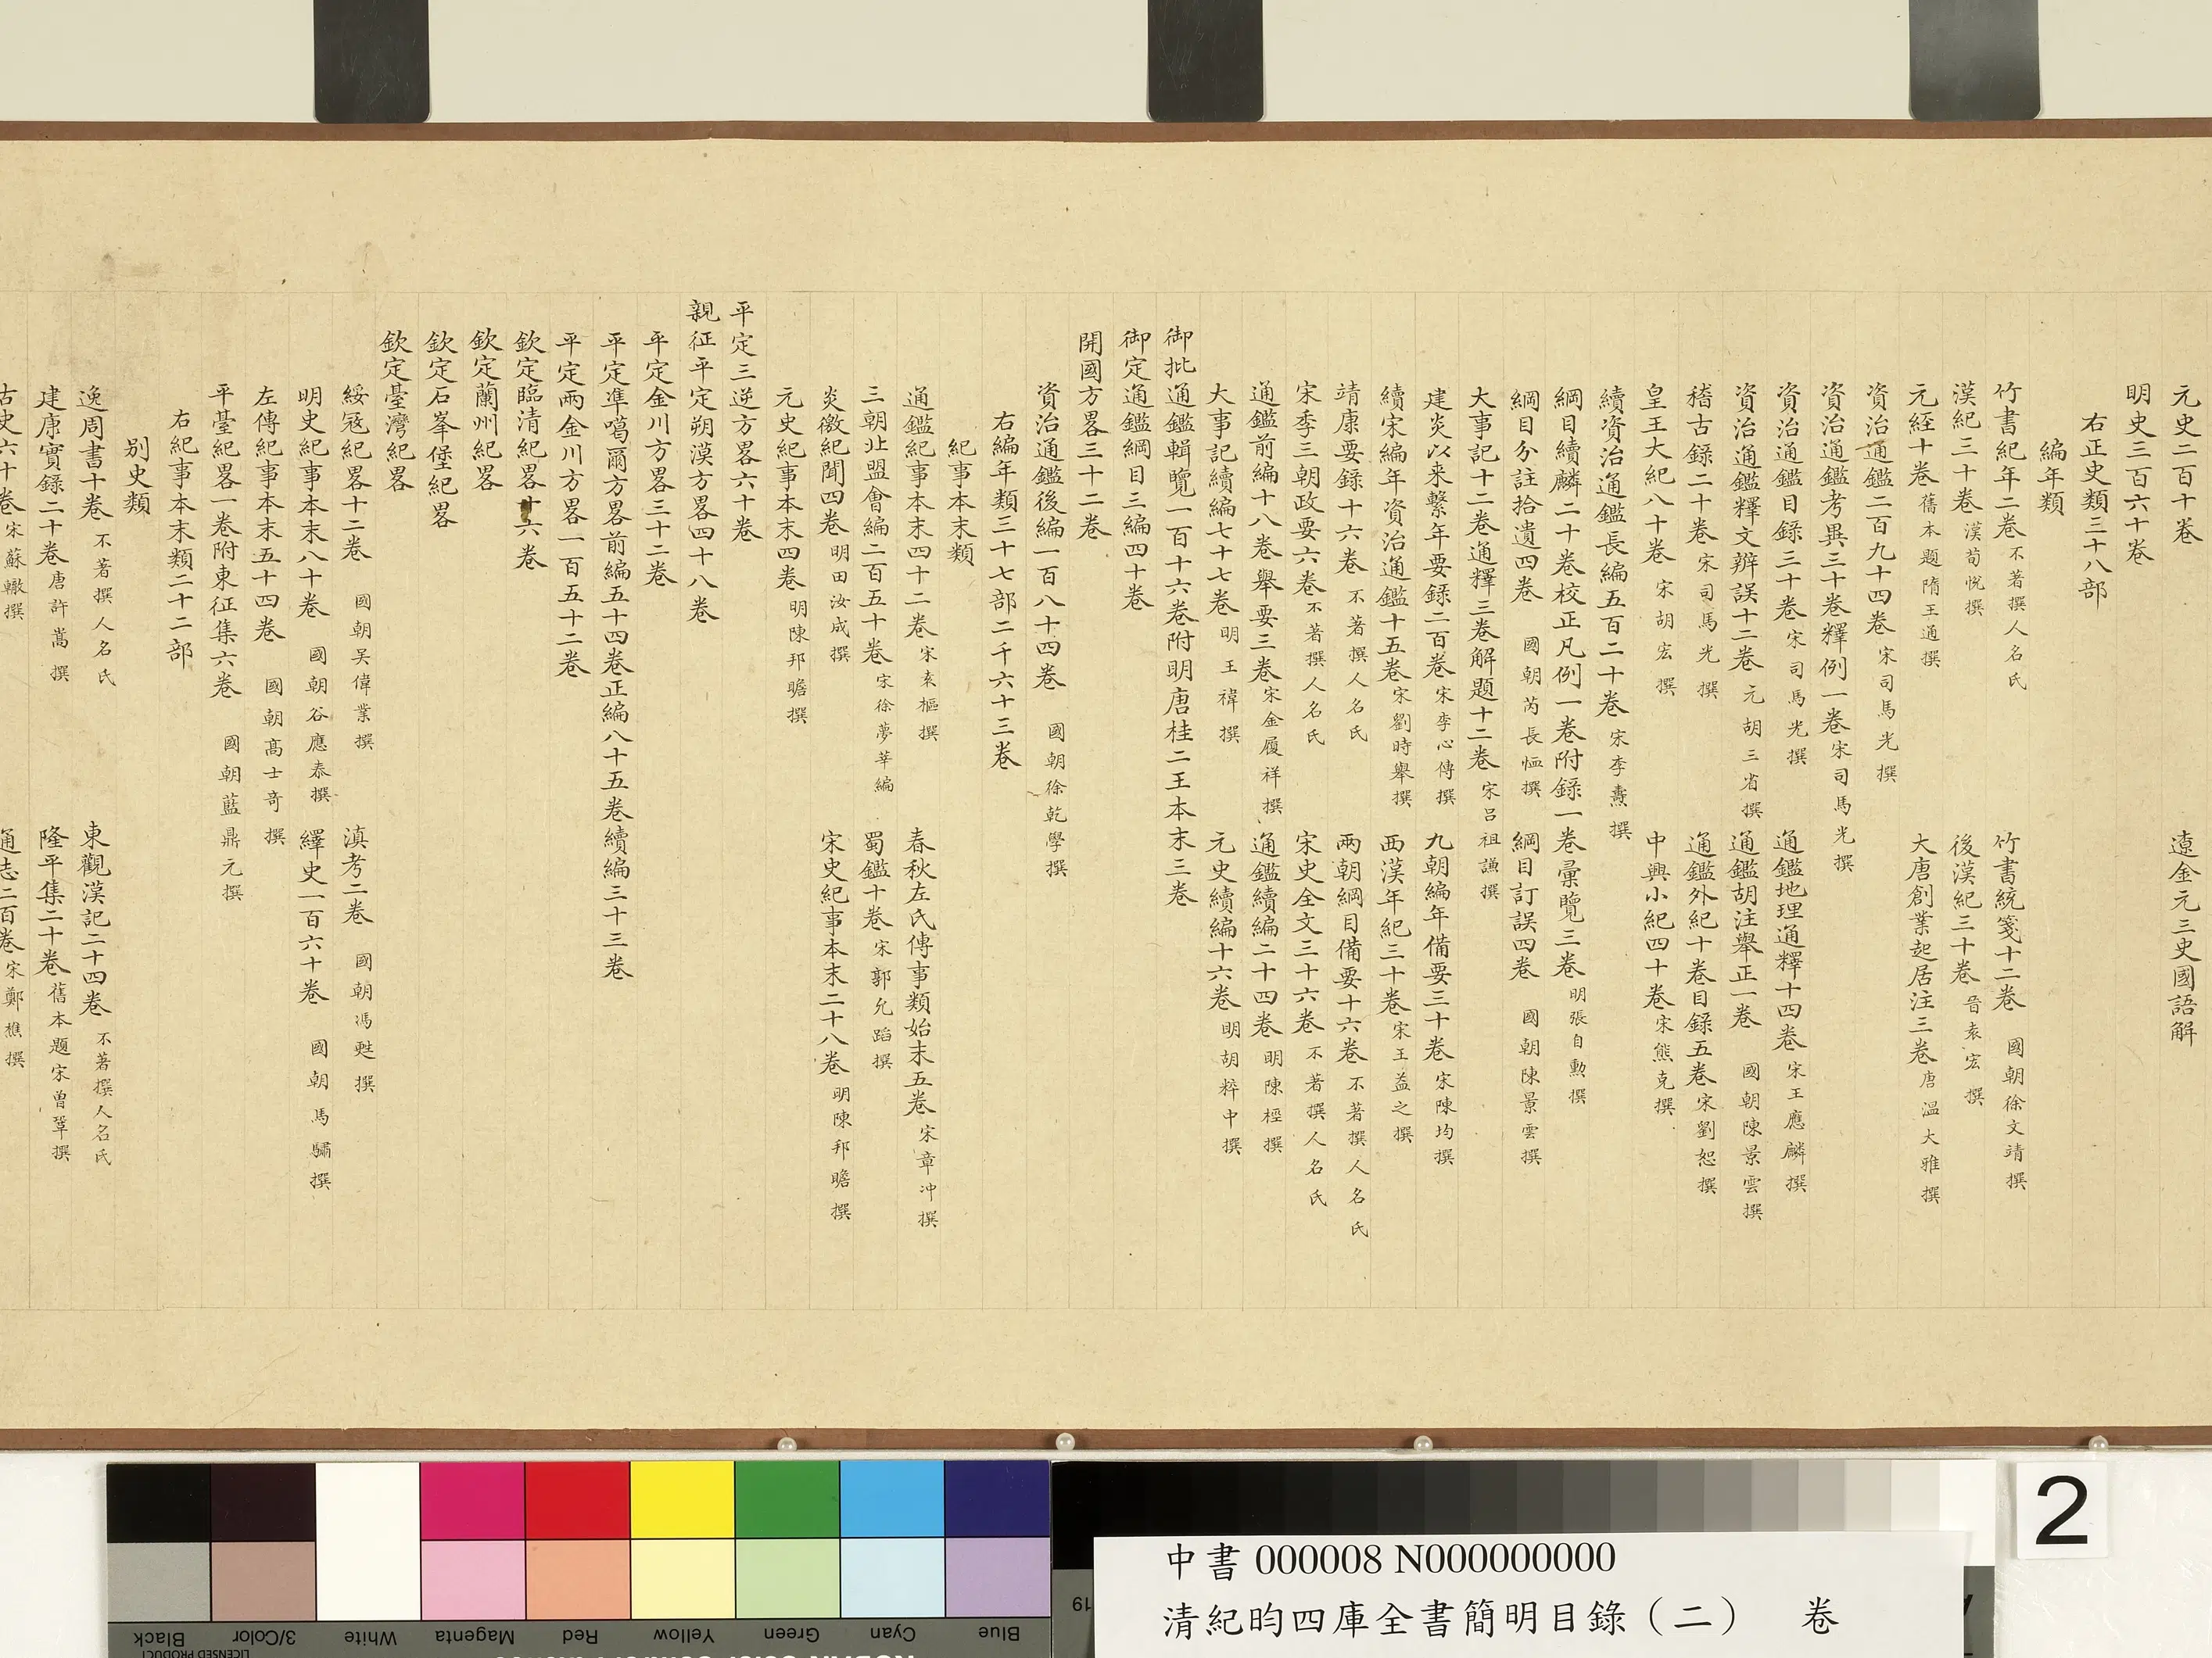 元史二百十卷　遼金元三史國語解
明史三百六十卷
右正史類三十八部
編年類
竹書紀年二卷 不著撰人名氏　竹書統箋十二卷 國朝徐文靖撰
漢紀三十卷 漢荀悅撰　後漢紀三十卷 晉袁宏撰
元經十卷 舊本題隋王通撰　大唐創業起居注三卷 唐溫大雅撰
資治通鑑二百九十四卷 宋司馬光撰
資治通鑑考異三十卷釋例一卷 宋司馬光撰
資治通鑑目錄三十卷 宋司馬光撰　通鑑地理通釋十四卷 宋王應麟撰
資治通鑑釋文辨誤十二卷 元胡三省撰　通鑑胡注舉正一卷 國朝陳景雲撰
稽古錄二十卷 宋司馬光撰　通鑑外紀十卷目錄五卷 宋劉恕撰
皇王大紀八十卷 宋胡宏撰　中興小紀四十卷 宋熊克撰
續資治通鑑長編五百二十卷 宋李燾撰
綱目續麟二十卷校正凡例一卷附錄一卷彙覽三卷 明張自勳撰
綱目分註拾遺四卷 國朝芮長恤撰　綱目訂誤四卷 國朝陳景雲撰
大事記十二卷通釋三卷解題十二卷 宋呂祖謙撰
建炎以来繫年要錄二百卷 宋李心傳撰　九朝編年備要三十卷 宋陳均撰
續宋編年資治通鑑十五卷 宋劉時舉撰　西漢年紀三十卷 宋王益之撰
靖康要錄十六卷 不著撰人名氏　兩朝綱目備要十六卷 不著撰人名氏
宋季三朝政要六卷 不著撰人名氏　宋史全文三十六卷 不著撰人名氏
通鑑前編十八卷舉要三卷 宋金履祥撰　通鑑續編二十四卷 明陳桱撰
大事記續編七十七卷 明王褘撰　元史續編十六卷 明胡粹中撰
御批通鑑輯覽一百十六卷附明唐桂二王本末三卷
御定通鑑綱目三編四十卷
開國方畧三十二卷
資治通鑑後編一百八十四卷 國朝徐乾學撰
右編年類三十七部二千六十三卷
紀事本末類
通鑑紀事本末四十二卷 宋袁樞撰　春秋左氏傳事類始末五卷 宋章冲撰
三朝北盟會編二百五十卷 宋徐夢莘編　蜀鑑十卷 宋郭允蹈撰
炎徼紀聞四卷 明田汝成撰　宋史紀事本末二十八卷 明陳邦瞻撰
元史紀事本末四卷 明陳邦瞻撰
平定三逆方畧六十卷
親征平定朔漠方畧四十八卷
平定金川方畧三十二卷
平定準噶爾方畧前編五十四卷正編八十五卷續編三十三卷
平定兩金川方畧一百五十二卷
欽定臨清紀畧十六卷
欽定蘭州紀畧
欽定石峯堡紀畧
欽定臺灣紀畧
綏寇紀畧十二卷 國朝吳偉業撰　滇考二卷 國朝馮甦撰
明史紀事本末八十卷 國朝谷應泰撰　繹史一百六十卷 國朝馬驌撰
左傳紀事本末五十四卷 國朝髙士奇撰
平臺紀畧一卷附東征集六卷 國朝藍鼎元撰
右紀事本末類二十二部
别史類
逸周書十卷 不著撰人名氏　東觀漢記二十四卷 不著撰人名氏
建康實錄二十卷 唐許嵩撰　隆平集二十卷 舊本題宋曾鞏撰
古史六十卷 宋蘇轍撰　通志二百卷 宋鄭樵撰
2
中書 000008 N000000000
清紀昀四庫全書簡明目錄（二）　卷
Black 3/Color White Magenta Red Yellow Green Cyan Blue
LICENSED PRODUCT
19